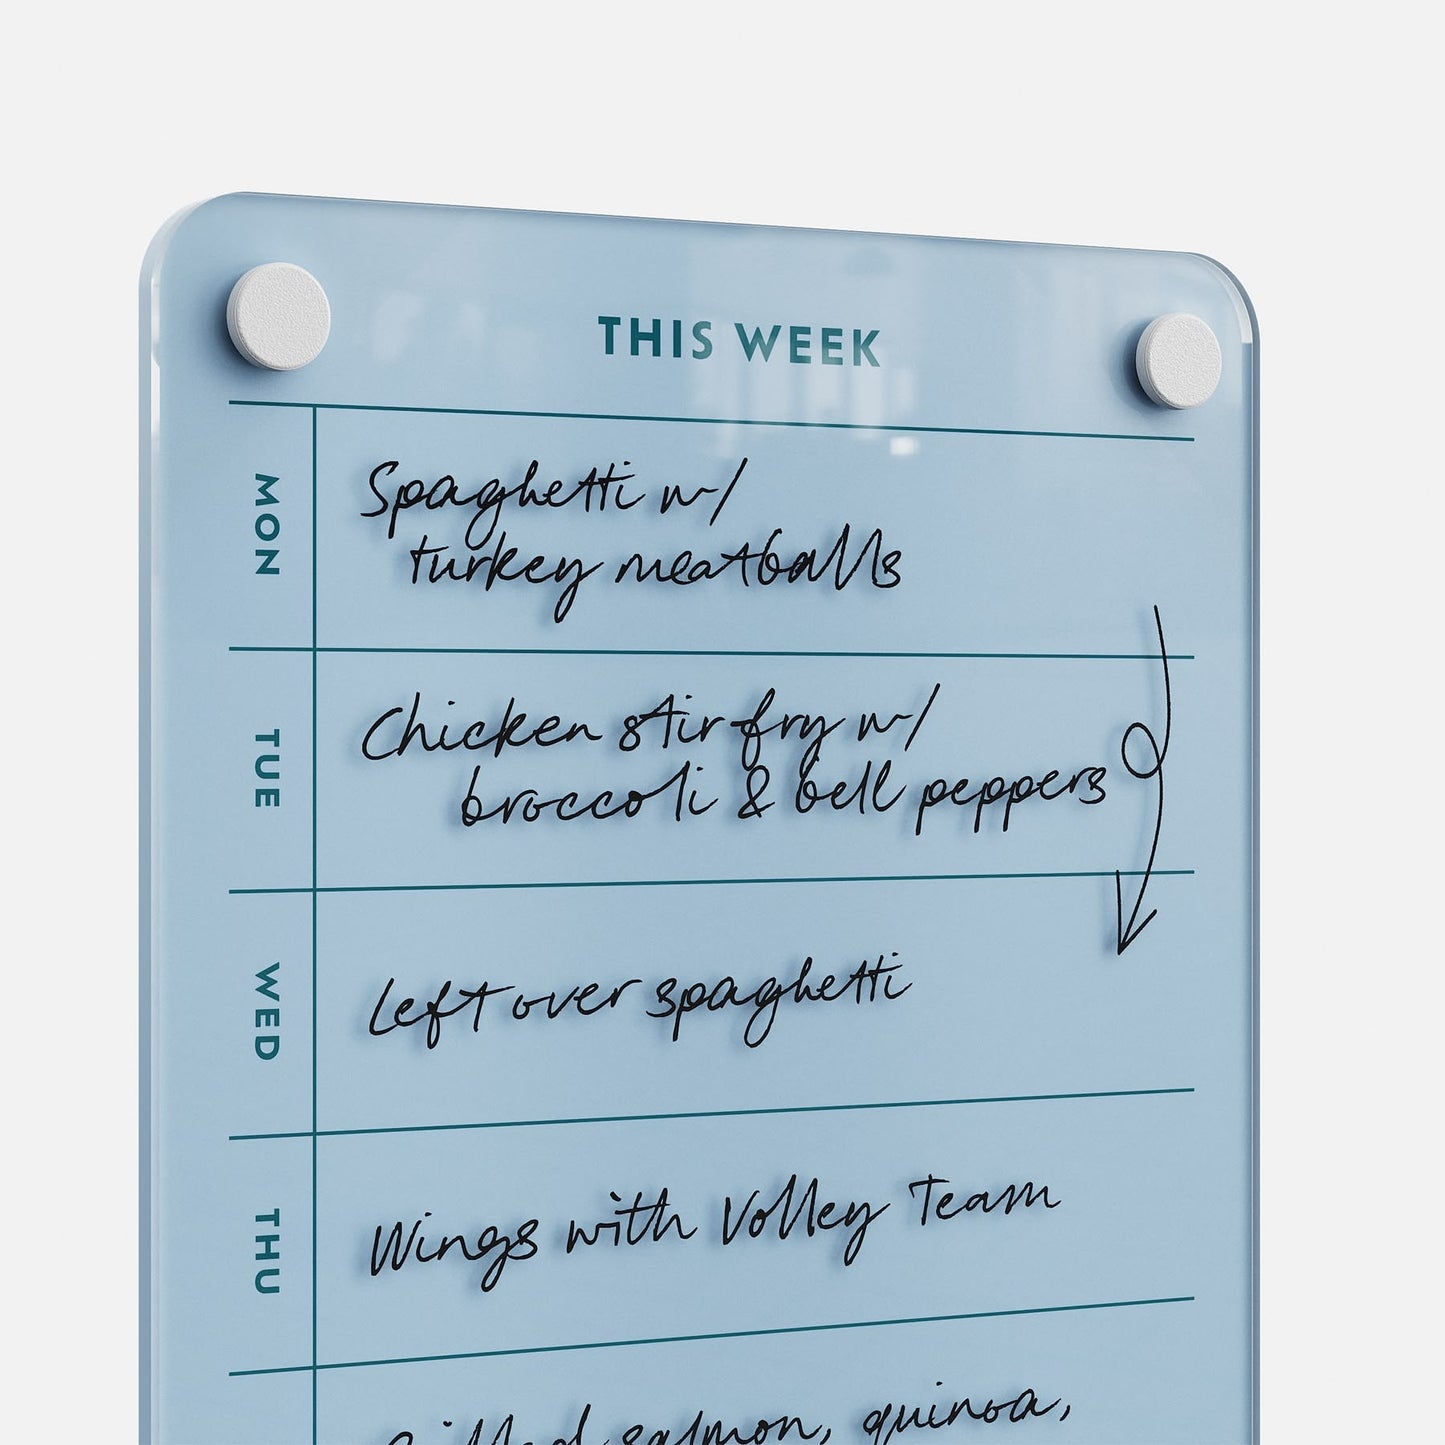 THIS WEEK
MON
Spaghetti w/
turkey meatballs
TUE
Chicken stir fry w/
broccoli & bell peppers
WED
Left over spaghetti
THU
Wings with Volley Team
Grilled salmon, quinoa,